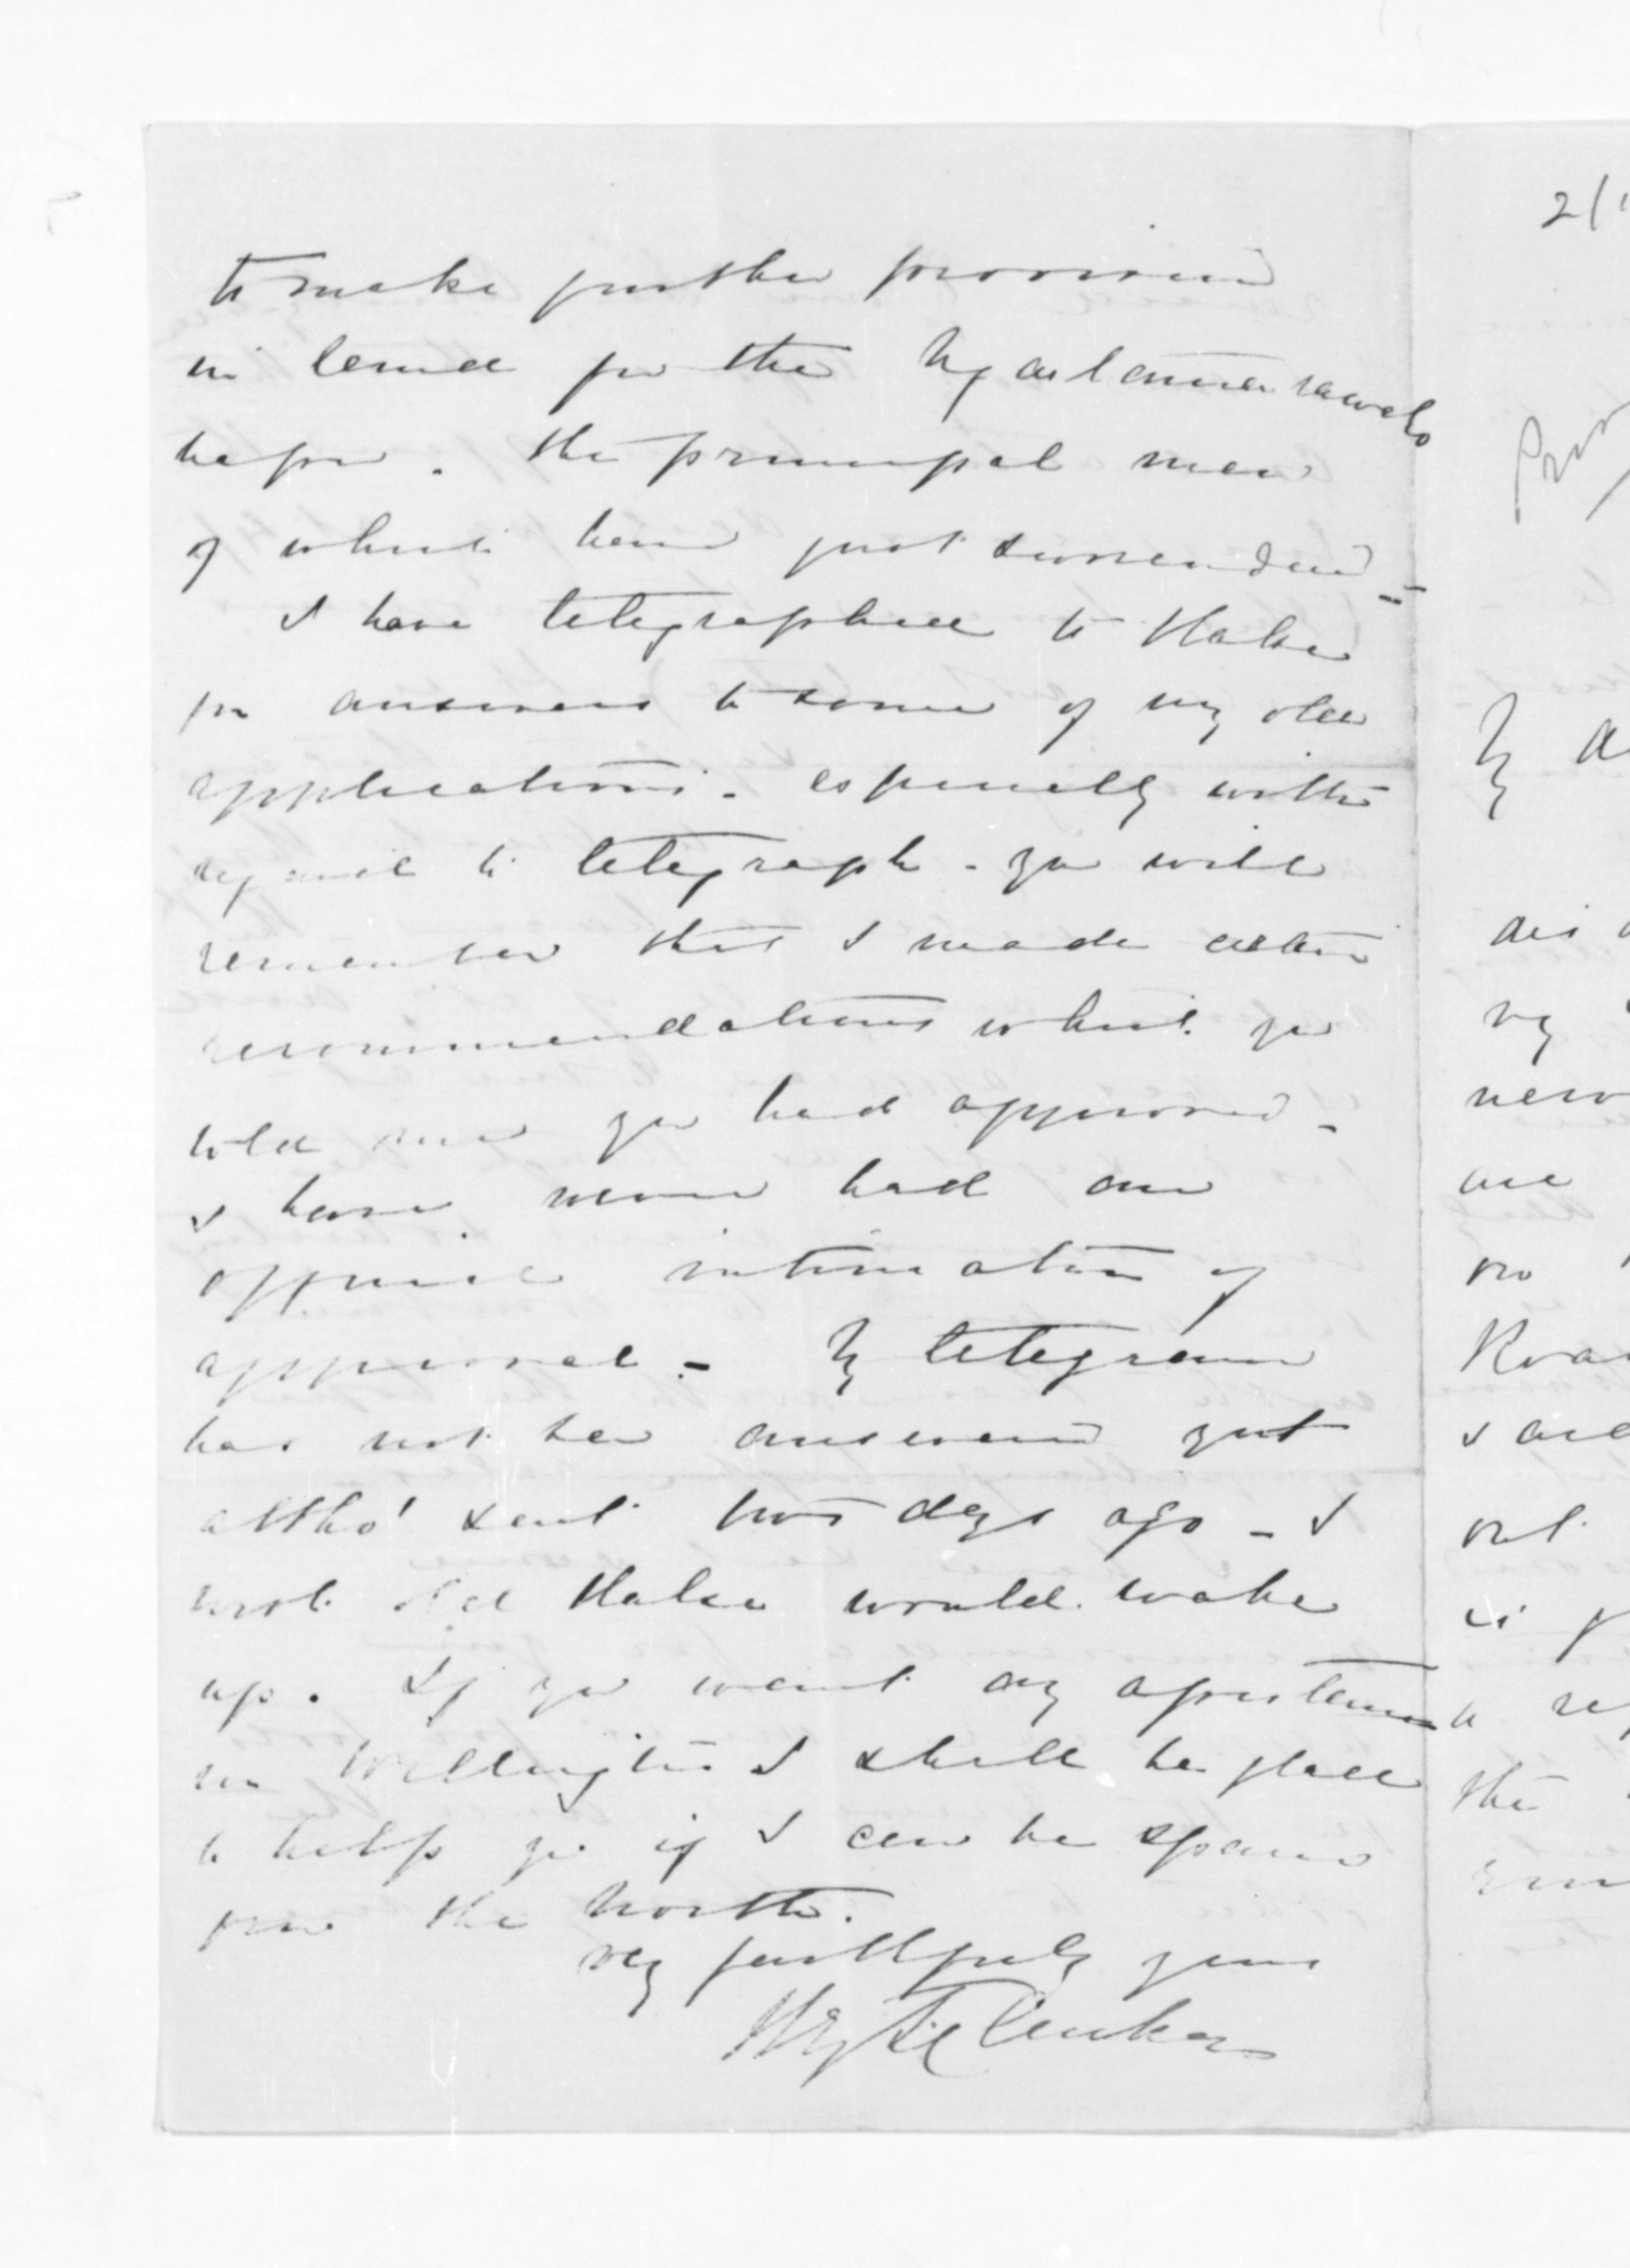 to make further provision
in land for the Ngatimaru
hapu. the principal men
of which have just surrendered =
I have telegraphed to Halse
for answers to some of my old
applications. especially with
regard to telegraph - you will
remember that I made certain
recommendations which you
told me you had approved -
I have never had an
official intimation of
approval - My telegram
has not been answered yet
altho' sent two days ago - I
wish old Halse would wake
up. If you want any assistance
in Wellington I shall be glad
to help you if I can be spared
from the North.
very faithfully yours
Hy T Clarke
2/
My